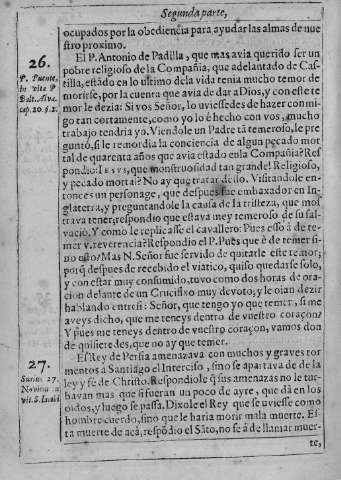 Segunda parte,
ocupados por la obediencia para ayudar las almas de nue
stro proximo.
26.
P. Puente,
in vita P
Balt. Alva.
cap. 20. §. 2.
El P. Antonio de Padilla, que mas avia querido ser un
pobre religioso de la Compañia, que adelantado de Cas-
tilla, estādo en lo ultimo dela vida tenia mucho temor de
morirse, por la cuenta que avia de dar a Dios, y con este te
mor le dezia: Si vos Señor, lo uviessedes de hazer conmi
go tan cortamente, como yo lo è hecho con vos, mucho
trabajo tendria yo. Viendole un Padre tā temeroso, le pre
guntó, si le remordia la conciencia de algun pecado mor
tal de quarenta años que avia estado en la Compañia? Res
pondio: IESVS, que monstruosidad tan grande! Religioso,
y pecado mortal? No ay que tratar de ilo. Visitandole en-
tonces un personage, que despues fue embaxador en In-
glaterra, y preguntandole la causa de la tristeza, que mos
trava tener, respondio que estava muy temeroso de su sal-
vaciō. Y como le replicasse el cavallero: Pues esso à de te-
mer v. reverencia? Respondio el P. Pues que è de temer si-
no esto? Mas N. Señor fue servido de quitarle este temor;
porq̄ despues de recebido el viatico, quiso quedarse solo,
y con estar muy consumido, tuvo como dos horas de ora-
cion delante de un Crucifixo muy devoto; y le oian dezir
hablando entre si: Señor, que tengo yo que temer, si me
aveys dicho, que me teneys dentro de vuestro coraçon?
Y pues me teneys dentro de vuestro coraçon, vamos don
de quisieredes, que no ay que temer.
27.
Surius 27.
Novimb. in
vit. S.
El Rey de Persia amenazava con muchos y graves tor
mentos a Santiago el Interciso, sino se apartava de la
ley y fè de Christo. Respondiole q̄ sus amenazas no le tur-
bavan mas q̄ si fueran un poco de ayre, que dà en los
oidos, y luego se passa. Dixole el Rey que se uviesse como
hombre cuerdo, sino que le haria morir mala muerte. Es-
ta muerte de acà, respōdio el Sāto, no se à de llamar muer-
te,